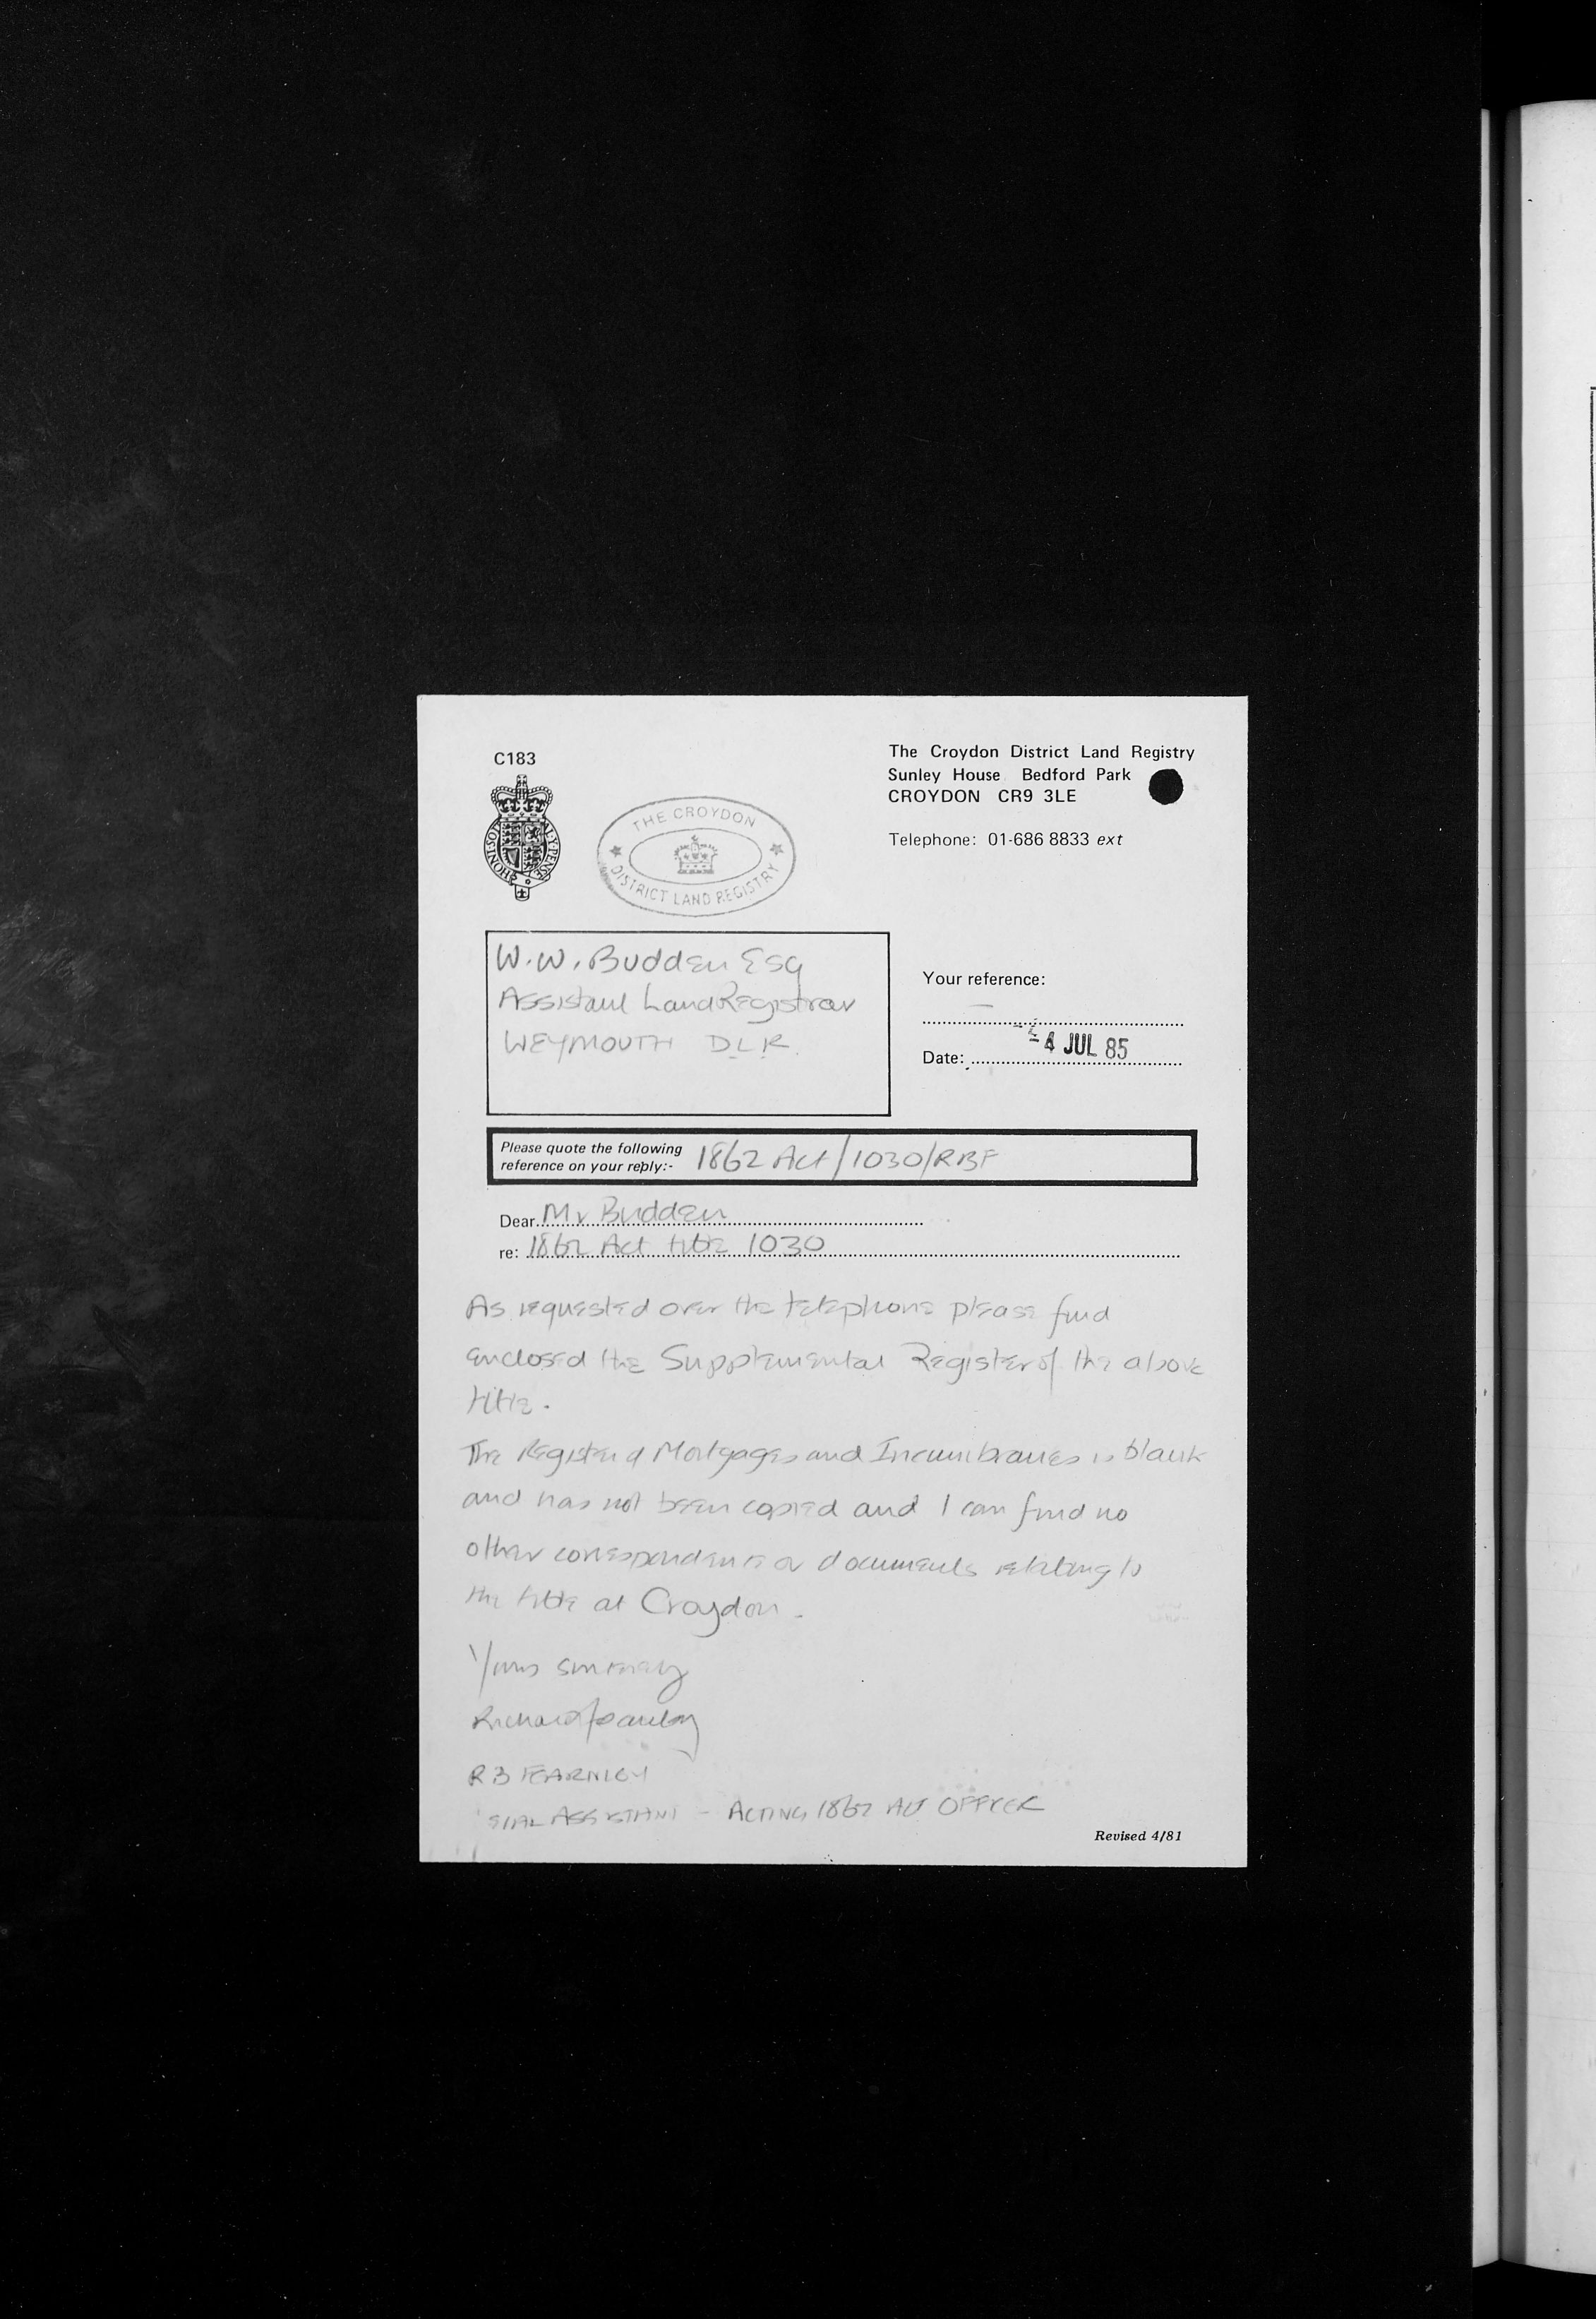 C183
The Croydon District Land Registry
Sunley House Bedford Park
CROYDON CR9 3LE
Telephone: 01-686 8833 ext
THE CROYDON
DISTRICT LAND REGISTRY
W.W. Budden Esq
Assistant Land Registrar
WEYMOUTH D.L.R.
Your reference:
Date: -4 JUL 85
Please quote the following
reference on your reply:- 1862 Act/1030/RBF
Dear Mr Budden
re: 1862 Act title 1030
As requested over the telephone please find
enclosed the Supplemental Register of the above
title.
The Register of Mortgages and Incumbrances is blank
and has not been copied and I can find no
other correspondence or documents relating to
the title at Croydon.
Yours sincerely
Richard
R B FEARNLEY
ASSISTANT - ACTING 1862 ACT OFFICER
Revised 4/81